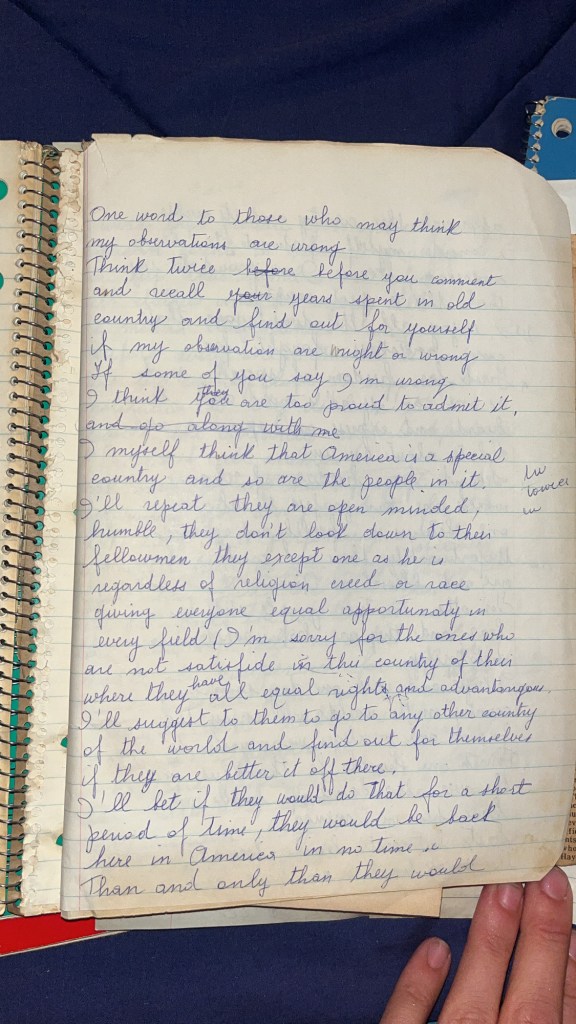 One word to those who may think
my observations are wrong
Think twice before before you comment
and recall your years spent in old
country and find out for yourself
if my observation are might or wrong
If some of you say I'm wrong
I think you then are too proud to admit it,
and go along with me
I myself think that America is a special
country and so are the people in it.
I'll repeat they are open minded,
humble, they don't look down to their
fellowmen they except one as he is
regardless of religion creed or race
giving everyone equal opportunaty in
every field (I'm sorry for the ones who
are not satisfide in this country of their
where they have all equal rights and advantangous.
I'll suggest to them to go to any other country
of the world and find out for themselves
if they are better it off there.
I'll bet if they would do that for a short
period of time, they would be back
here in America in no time
Than and only than they would